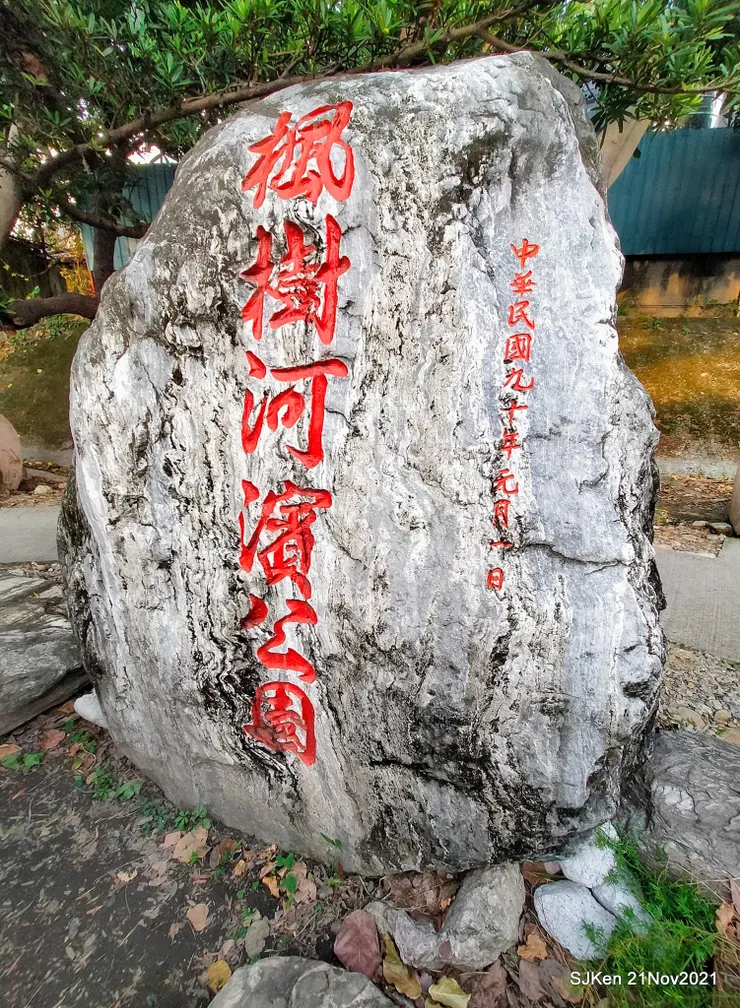 中華民國九十年元月一日
楓樹河濱公園
SJKen 21Nov2021